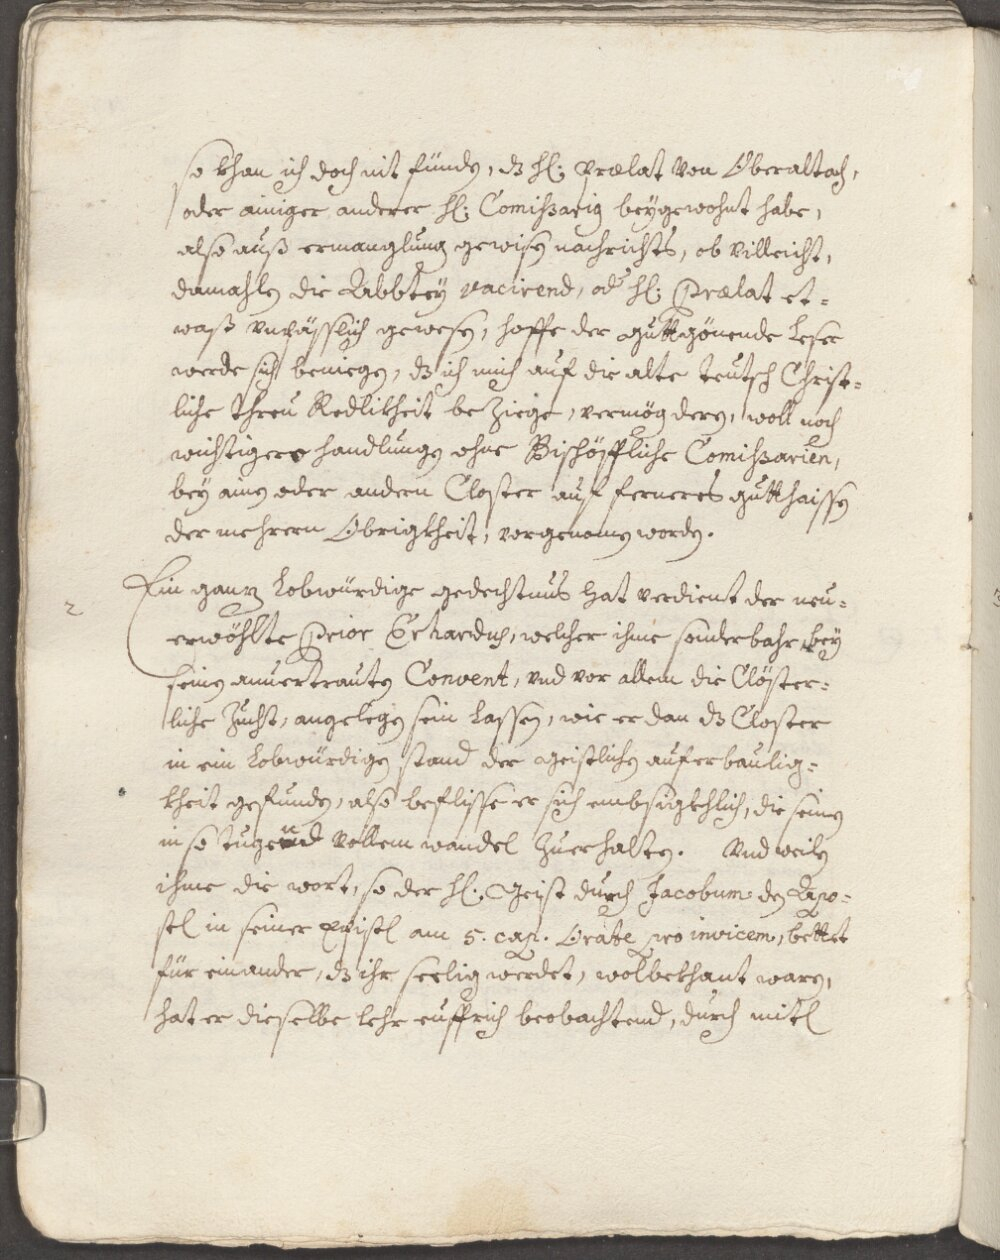 so khan ich doch nit fünden, dz hl: Prælat von Oberaltach,
oder ainiger anderer hl: Comißarig beygewohnt habe,
also auß ermanglung gewisen nachrichts, ob villeicht,
damahlen die Abbtey vacirend, od hl: Prælat et-
waß unpässlich gewesen, hoffe der guttgönende Leser
werde sich beniegen, dz ich mich auf die alte teutsch Christ-
liche threu Redlikheit beziege, vermög deren, woll noch
wichtigere handlungen ohne Bischöffliche Comißarien,
bey ainen oder andern Closter auf ferneres gutthaissen
der mehrern Obrigkheit, vorgenomen worden.
2 Ein ganz Lobwürdige gedechtnus hat verdient der neu-
erwöhlte Prior Erhardus, welcher ihme sonderbahr, bey
seinen anvertrauten Convent, vnd vor allem die Clöster-
liche Zucht, angelegen sein Lassen, wie er dan dz Closter
in ein Lobwürdigen stand der geistlichen auferbaulig-
kheit gefunden, also beflisse er sich embsigkhlich, die seinen
in so tugend vollem wandel zuerhalten. Vnd weilen
ihme die wort, so der hl. Geist durch Jacobum den Apo-
stel in seiner Epistl am 5. cap. Orate pro invicem, bettet
für einander, dz ihr seelig werdet, wolbekhant waren,
hat er dieselbe lehr euffrich beobachtend, durch mitl